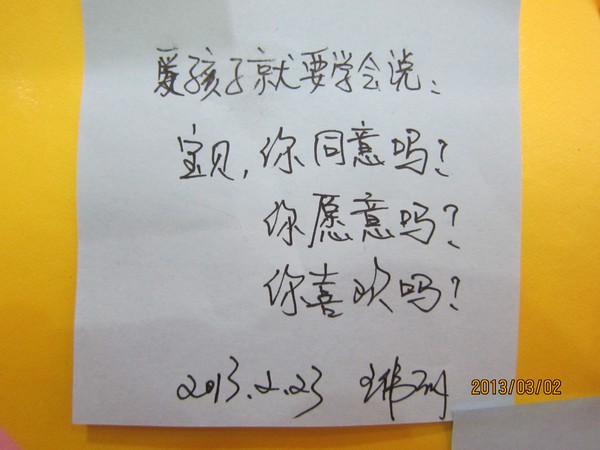 爱孩子就要学会说:
宝贝,你同意吗?
你愿意吗?
你喜欢吗?
2013.2.23
2013/03/02